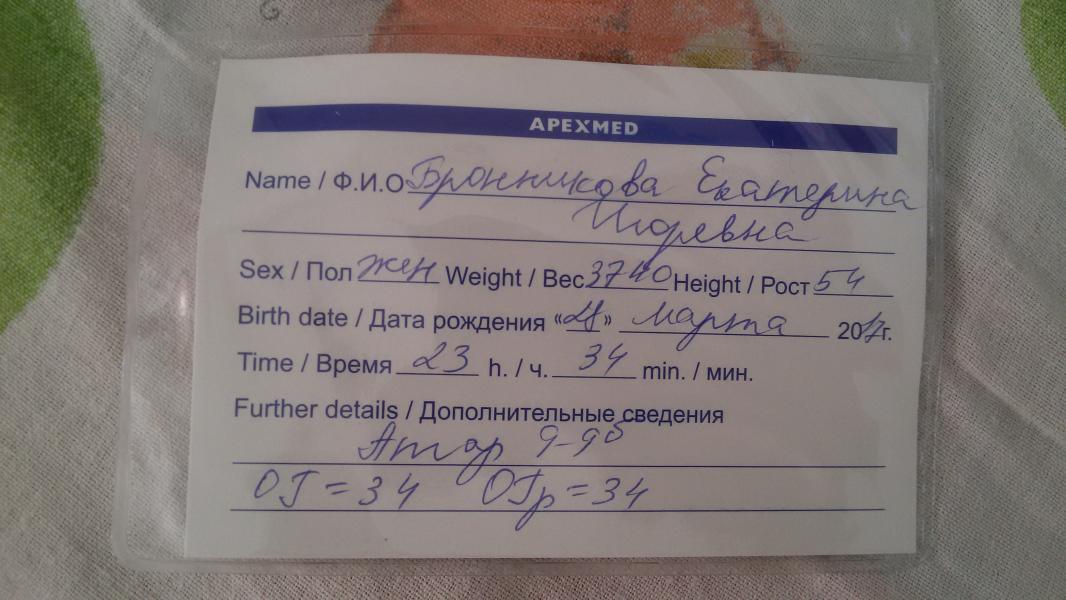 APEXMED
Name / Ф.И.О Бронникова Екатерина
Игоревна
Sex / Пол жен Weight / Вес 3740 Height / Рост 54
Birth date / Дата рождения «28» марта 2017г.
Time / Время 23 h. / ч. 34 min. / мин.
Further details / Дополнительные сведения
Апгар
ОГ = 34 ОГр = 34